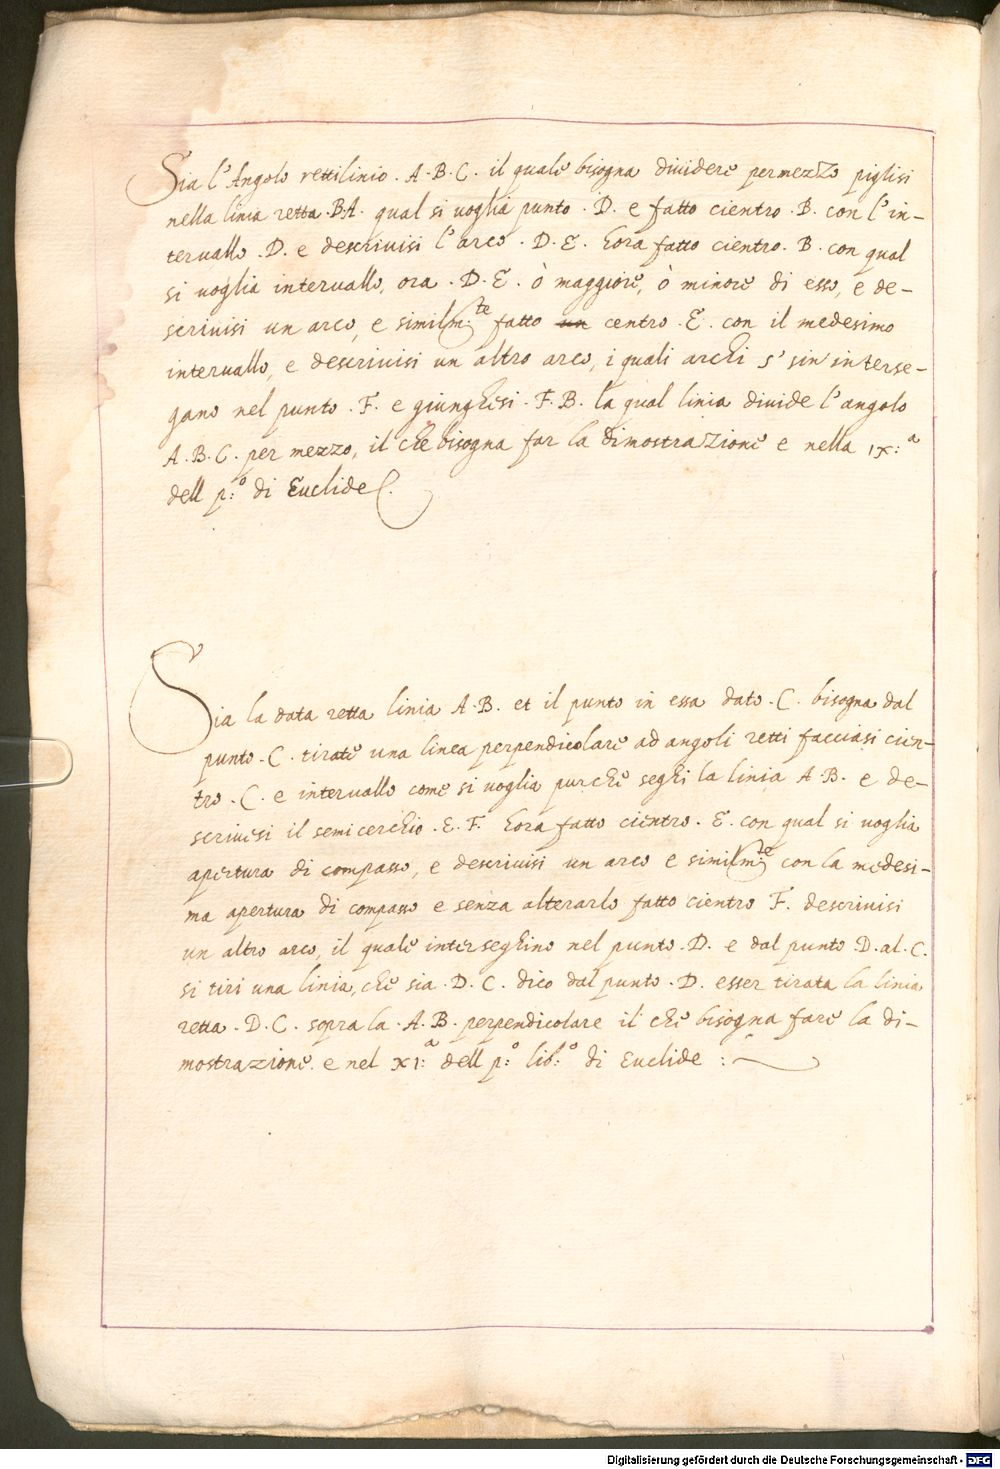 Sia l'Angolo rettilinio . A . B . C . il quale bisogna dividere per mezzo piglisi
nella linia retta . B A . qual si uoglia punto . D . e fatto cientro . B . con l'in-
teruallo . D . e descriuisi l'arco . D . E . hora fatto cientro . B . con qual
si uoglia interuallo, ora . D . E . ò maggiore, ò minore di esso, e de-
scriuisi un arco, e similm:te fatto un centro . E . con il medesimo
interuallo, e descriuisi un altro arco, i quali archi s' sin' interse-
gano nel punto . F . e giunghisi . F . B . la qual linia diuide l'angolo
A . B . C . per mezzo, il che bisogna far la dimostrazione e nella IX:a
dell p:o di Euclide.
Sia la data retta linia A . B . et il punto in essa dato . C . bisogna dal
punto . C . tirate una linea perpendicolare ad angoli retti facciasi cien-
tro . C . e interuallo come si uoglia purche seghi la linia A . B . e de-
scriuesi il semicerchio . E . F . hora fatto cientro . E . con qual si uoglia
apertura di compasso, e descriuisi un arco e similm:te con la medesi-
ma apertura di compasso e senza alterarlo fatto cientro F . descriuisi
un altro arco, il quale interseghino nel punto . D . e dal punto . D . al . C .
si tiri una linia, che sia . D . C . dico dal punto . D . esser tirata la linia
retta . D . C . sopra la . A . B . perpendicolare il che bisogna fare la di-
mostrazione . e nel XI:a dell p:o lib:o di Euclide :
Digitalisierung gefördert durch die Deutsche Forschungsgemeinschaft - DFG